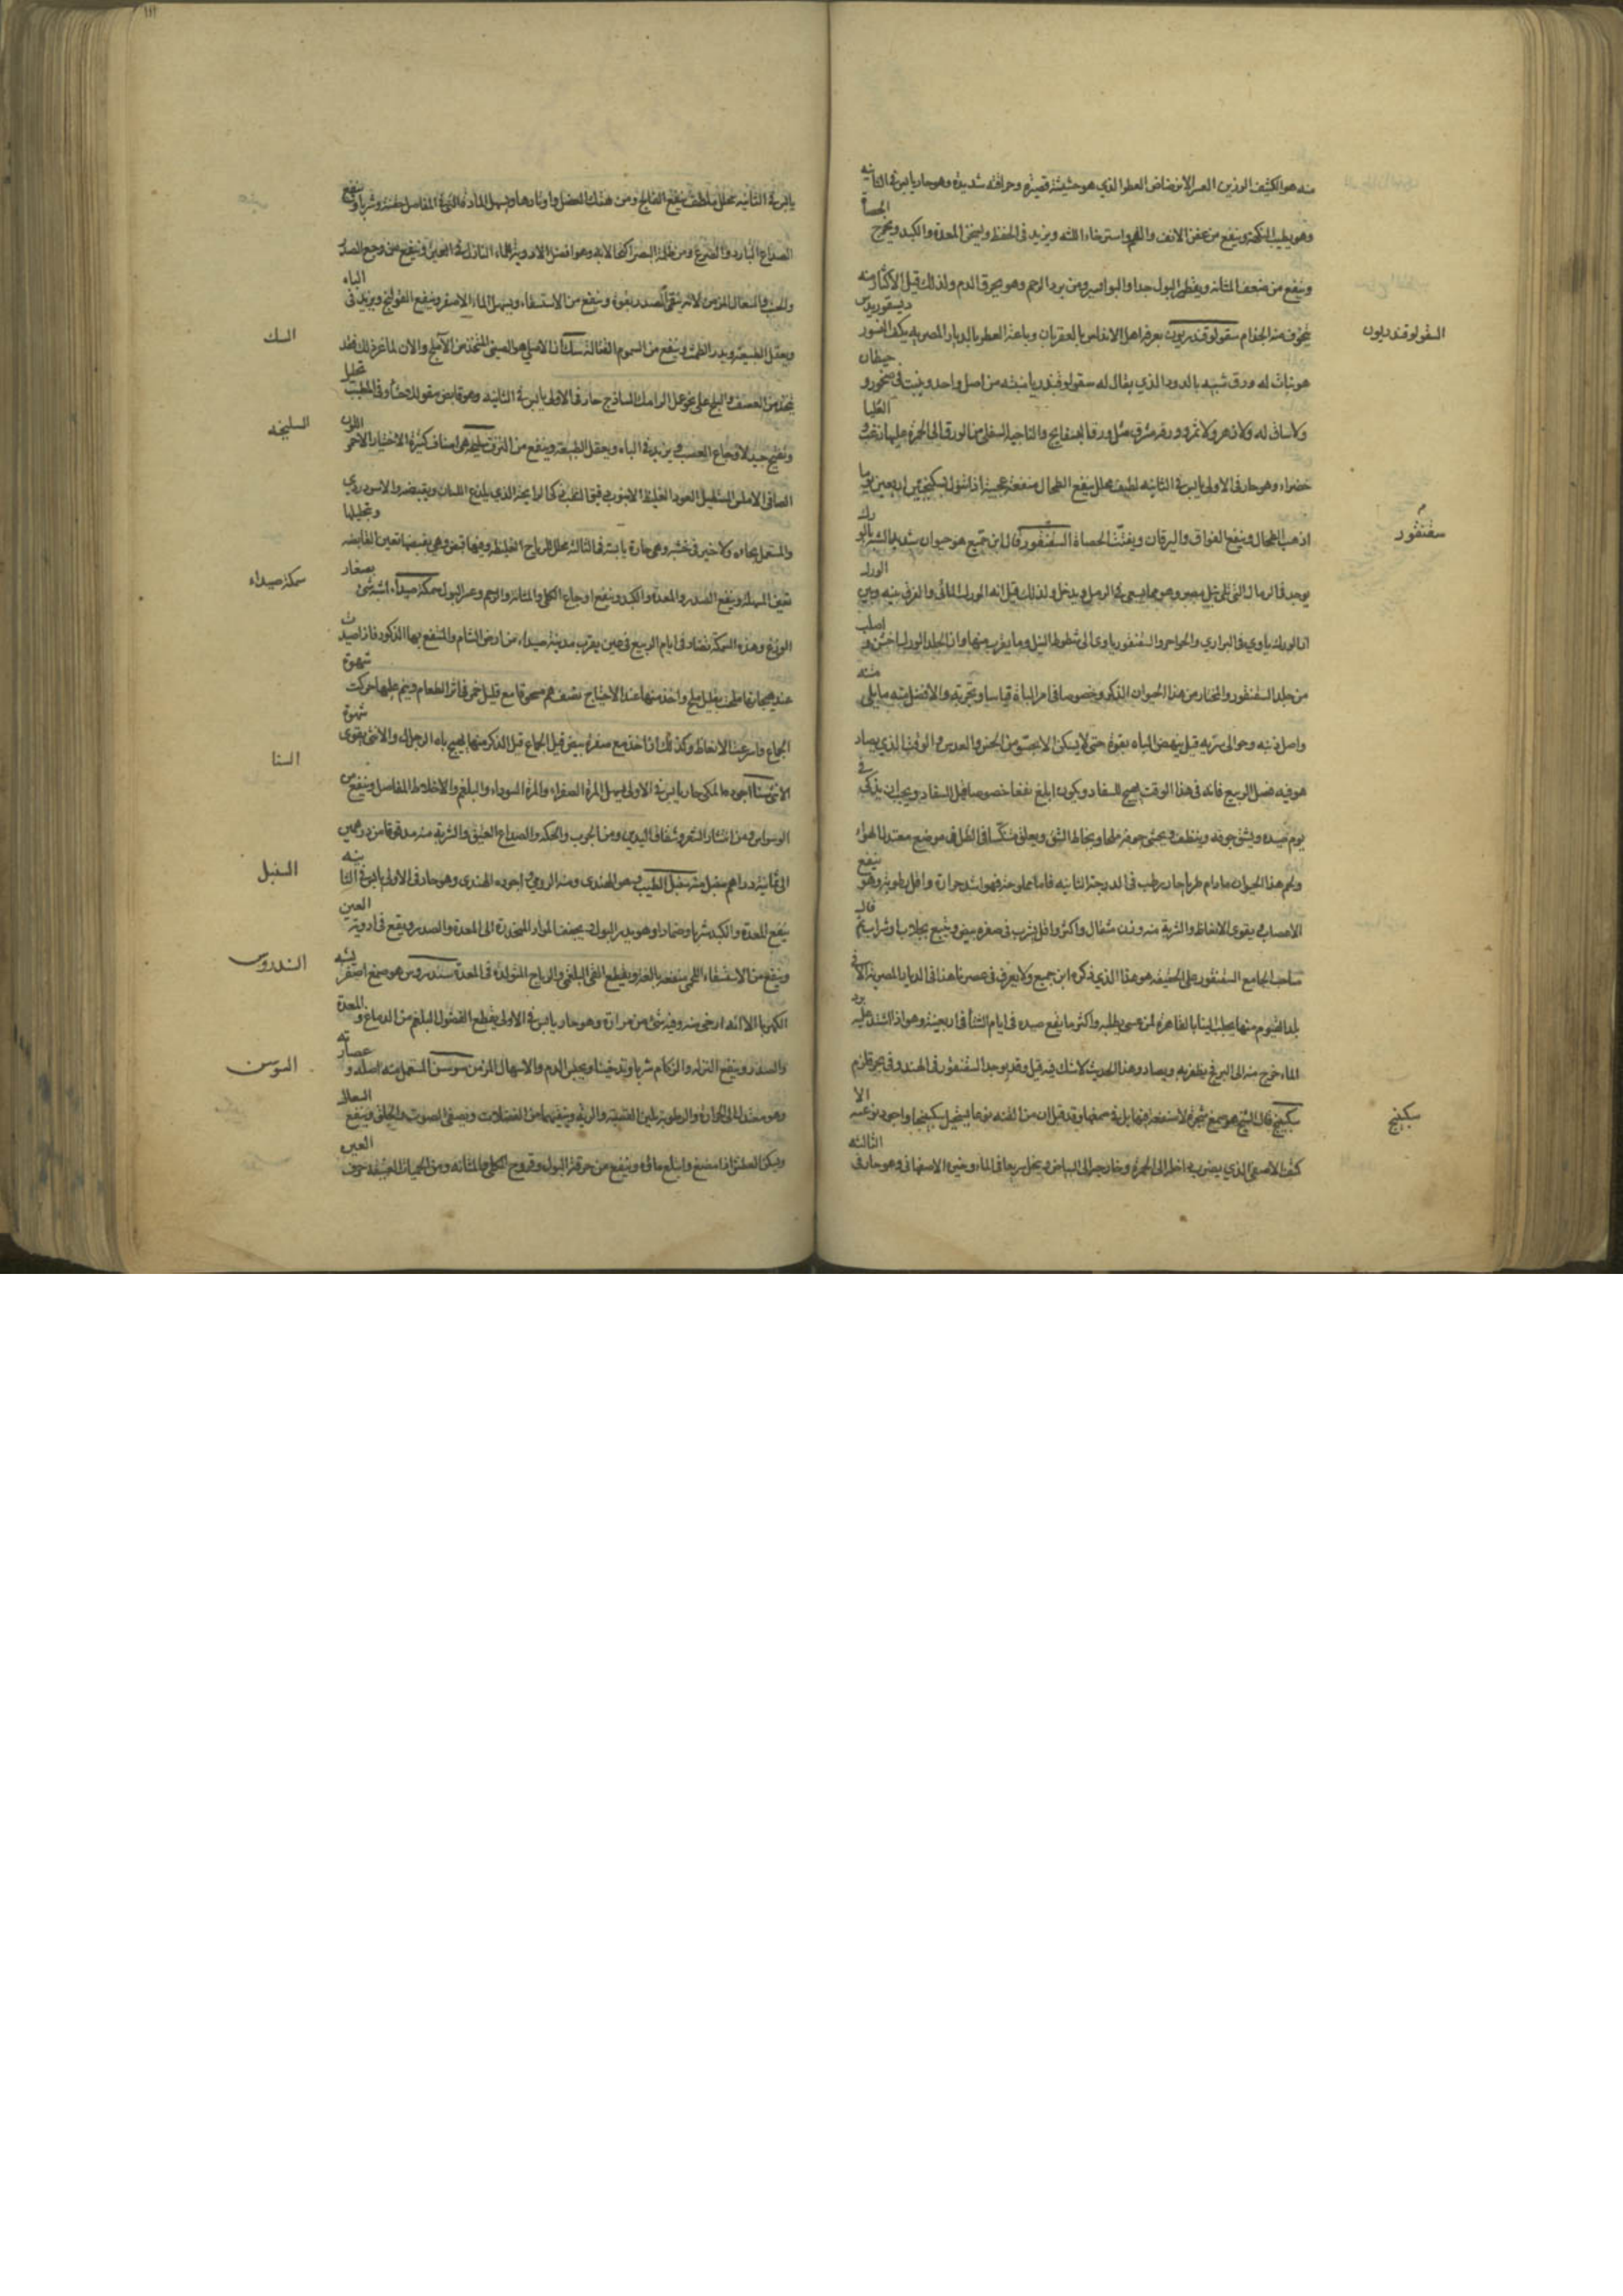 منه هو الكثيف الورزين العسر الانرضاض العطر الذي هو حشيشة قصيرة وحرافته شديدة وهو حار يابس في الثانية
وهو يطيب النكهة وينفع من عفن الانف والفم واسترخاء اللثه ويزيد في الحفظ ويسخن المعدة والكبد ويخرج الحصاة
وينفع من ضعف المثانه وتقطير البول جدا والبواسير ومن برد الرحم وهو يحرق الدم ولذلك قيل الاكثار منه
السقولوقندريون
يخوف منه الجذام سقولوقندريون يعرفه اهل الاندلس بالعقربان وباعة العطر بالديار المصريه بكف النسور ديسقوريدس
هو نبات له ورق شبيه بالدود الذي يقال له سقولوفندريا منبته من اصل واحد وينبت في صخور و حيطان
ولا ساق له ولا زهر ولا ثمر وورقه مشرف مثل ورق البسفايج والناحية السفلى من الورق الى الحمرة عليها زغب و العليا
خضراء وهو حار في الاولى يابس في الثانيه لطيف محلل ينفع الطحال منفعة عجيبة اذا شرب بسكنجبين اربعين يوما
سقنقور
اذهب الطحال وينفع الفواق واليرقان ويفتت الحصاة السقنقور قال ابن جميع هو حيوان شديد الشبه بالورل
يوجد في الرمال التي تلي نيل مصر وهو مما يسعى في الرمل ويدخل ولذلك قيل انه الورل المائى والفرق بينه وبين الورل
ان الورل ياوي في البراري والسقنقور ياوى الى شطوط النيل وما يقرب منها وان جلد الورل اخشن و اصلب
من جلد السقنقور والمختار من هذا الحيوان الذكر وخصوصا في امر الباه قياسا وتجربة والافضل منه ما يلى متنه
واصل ذنبه وحوالى سرته قيل ينهض الباه بقوة حتى لا يسكن الا بحسو من الخس والعدس والوقت الذي يصاد
هو فيه فصل الربيع فانه في هذا الوقت يهيج للسفاد ويكون ابلغ نفعا خصوصا قبل السفاد ويجب ان يذكى في
يوم صيده ويشق جوفه وينظف ويحشى جوفه ملحا ويخاط الشق ويعلق منكسا في الظل في موضع معتدل الهواء
ولحم هذا الحيوان ما دام طريا حار رطب في الدرجة الثانيه فاما مملوحه فهو اشد حرارة واقل رطوبة وهو ينفع
الاعصاب يقوى الانعاظ والشربة منه وزن مثقال واكثر واقل يشرب في صفرة بيض وخبيع بجلاب او شراب قال
صاحب الجامع السقنقور على الحقيقه هو هذا الذي ذكره ابن جميع ولا يعرف في عصرنا هذا في الديار المصريه الا في
بلد الفيوم منها يجلب الينا بالقاهرة لمن عسى يطلبه واكثر ما يقع صيده في ايام الشتا في اربعينية وهو اذا اشتد عليه برد
الماء خرج منه الى البر فيظفر به ويصاد وهذا الحديث لا شك فيه قيل وقد يوجد السقنقور في الهند وفي بحر قلزم
سكبينج
سكبينج قال الشيخ هو صمغ شجرة لا منفعة فيها بل في صمغها وقد قيل ان من القنه نوعا يستحيل سكبينجا واجود نوعيه الا
كثف الاصفى الذي يضرب داخله الى الحمرة وخارجه الى البياض وينحل سريعا في الماء وخيره الاصفهانى وهو حار في الثالثة
يابس في الثانيه محلل ملطف ينفع الفالج ومن هتك العضل واوتارها ويسهل المادة التي في المفاصل حقنة وشربا وينفع
الصداع البارد والصرع ومن ظلمة البصر اكتحالا به وهو افضل الادوية للماء النازل في العين وينفع من وجع الصدر
والجنب والسعال المزمن لانه ينقى الصدر بقوة وينفع من الاستسقاء ويسهل الماء الاصفر وينفع القولنج ويزيد في الباه
السك
ويعقل الطبيعة ويدر الطمث وينفع من السموم القتالة سك الاصلي هو الصينى المتخذ من الاملج والان لما عز ذلك فقد
يتخذ من العفص والبلح على نحو عمل الرامك الساذج حار في الاولى يابس في الثانيه وهو قابض مقو للاحشاء وفي المطيب تحليل
السليخه
وتفتيح جيد لاوجاع العصب ويزيد في الباه ويعقل الطبيعه وينفع من النزف سليخه هي اصناف كثيرة الاختيار الاحمر اللون
الصافى الاملس المستطيل العود الغليظ الانبوب دقيق الثقب ذكي الرايحة الذي يلذع اللسان ويقبضه والاسود ردي
والمستعمل لحاءه ولا خير في خشبه وهي حارة يابسة في الثالثة تحلل الرياح الغليظه وفيها قبض وهي بقبضها تعين القابضه وبتحليلها
سمكة صيداء
تعين المسهلة وينفع الصدر والمعدة والكبد وينفع اوجاع الكلى والمثانه والرحم وعسر البول سمكة صيداء اشبه شئ بصغار
الوزغ وهذه السمكة تصاد في ايام الربيع في عين بقرب مدينة صيداء من ارض الشام والمنتفع بها الذكور فاذا صيدت
عند هيجانها ملحت بقليل ملح واخذ منها عند الاحتياج نصف درهم مسحوقا مع قليل خمر في اثر الطعام وينام عليها حركت شهوة
الجماع واسرعت الانعاظ وكذلك اذا اخذ مع صفرة بيض قبل الجماع قيل الذكر منها يهيج باه الرجال والانثى يقوى شهوة
السنا
الانثى سنا اجوده المكى حار يابس في الاولى يسهل المرة الصفراء والمرة السوداء والبلغم والاخلاط المفاصل وينفع من
الوسواس ومن انتشار الشعر وشقاق اليدين ومن الجرب والحكه والصداع العتيق والشربة منه مدقوقا من درهمين
السنبل
الى ثمانية دراهم سنبل منه سنبل الطيب وهو الهندى ومنه الرومي واجوده الهندى وهو حار في الاولى يابس في الثانيه
ينفع المعدة والكبد شربا وضمادا وهو يدر البول ويجفف المواد المتحدرة الى المعدة والصدر ويقع في ادوية العين
السندروس
وينفع من الاستسقاء اللحمى منفعة بالغة ويقطع القئ البلغمى والرياح المتولدة في المعدة سندروس هو صمغ اصفر يشبه
الكهربا الا انه ارخى منه وفيه شئ من مرارة وهو حار يابس في الاولى يقطع الفضول البلغم من الدماغ و المعدة
السوسن
والصدر وينفع النزله والزكام شربا وتدخينا ويحبس الدم والاسهال المزمن سوسن المستعمل منه اصله و عصارته
وهو معتدل الى الحرارة والرطوبة يلين القصبه والريه وينقيهما من الفضلات ويصفى الصوت والحلق وينفع السعال
ويسكن العطش اذا مضغ وابتلع ماؤه وينفع من حرقة البول وقروح الكلى والمثانه ومن الحميات العتيقة حرف العين